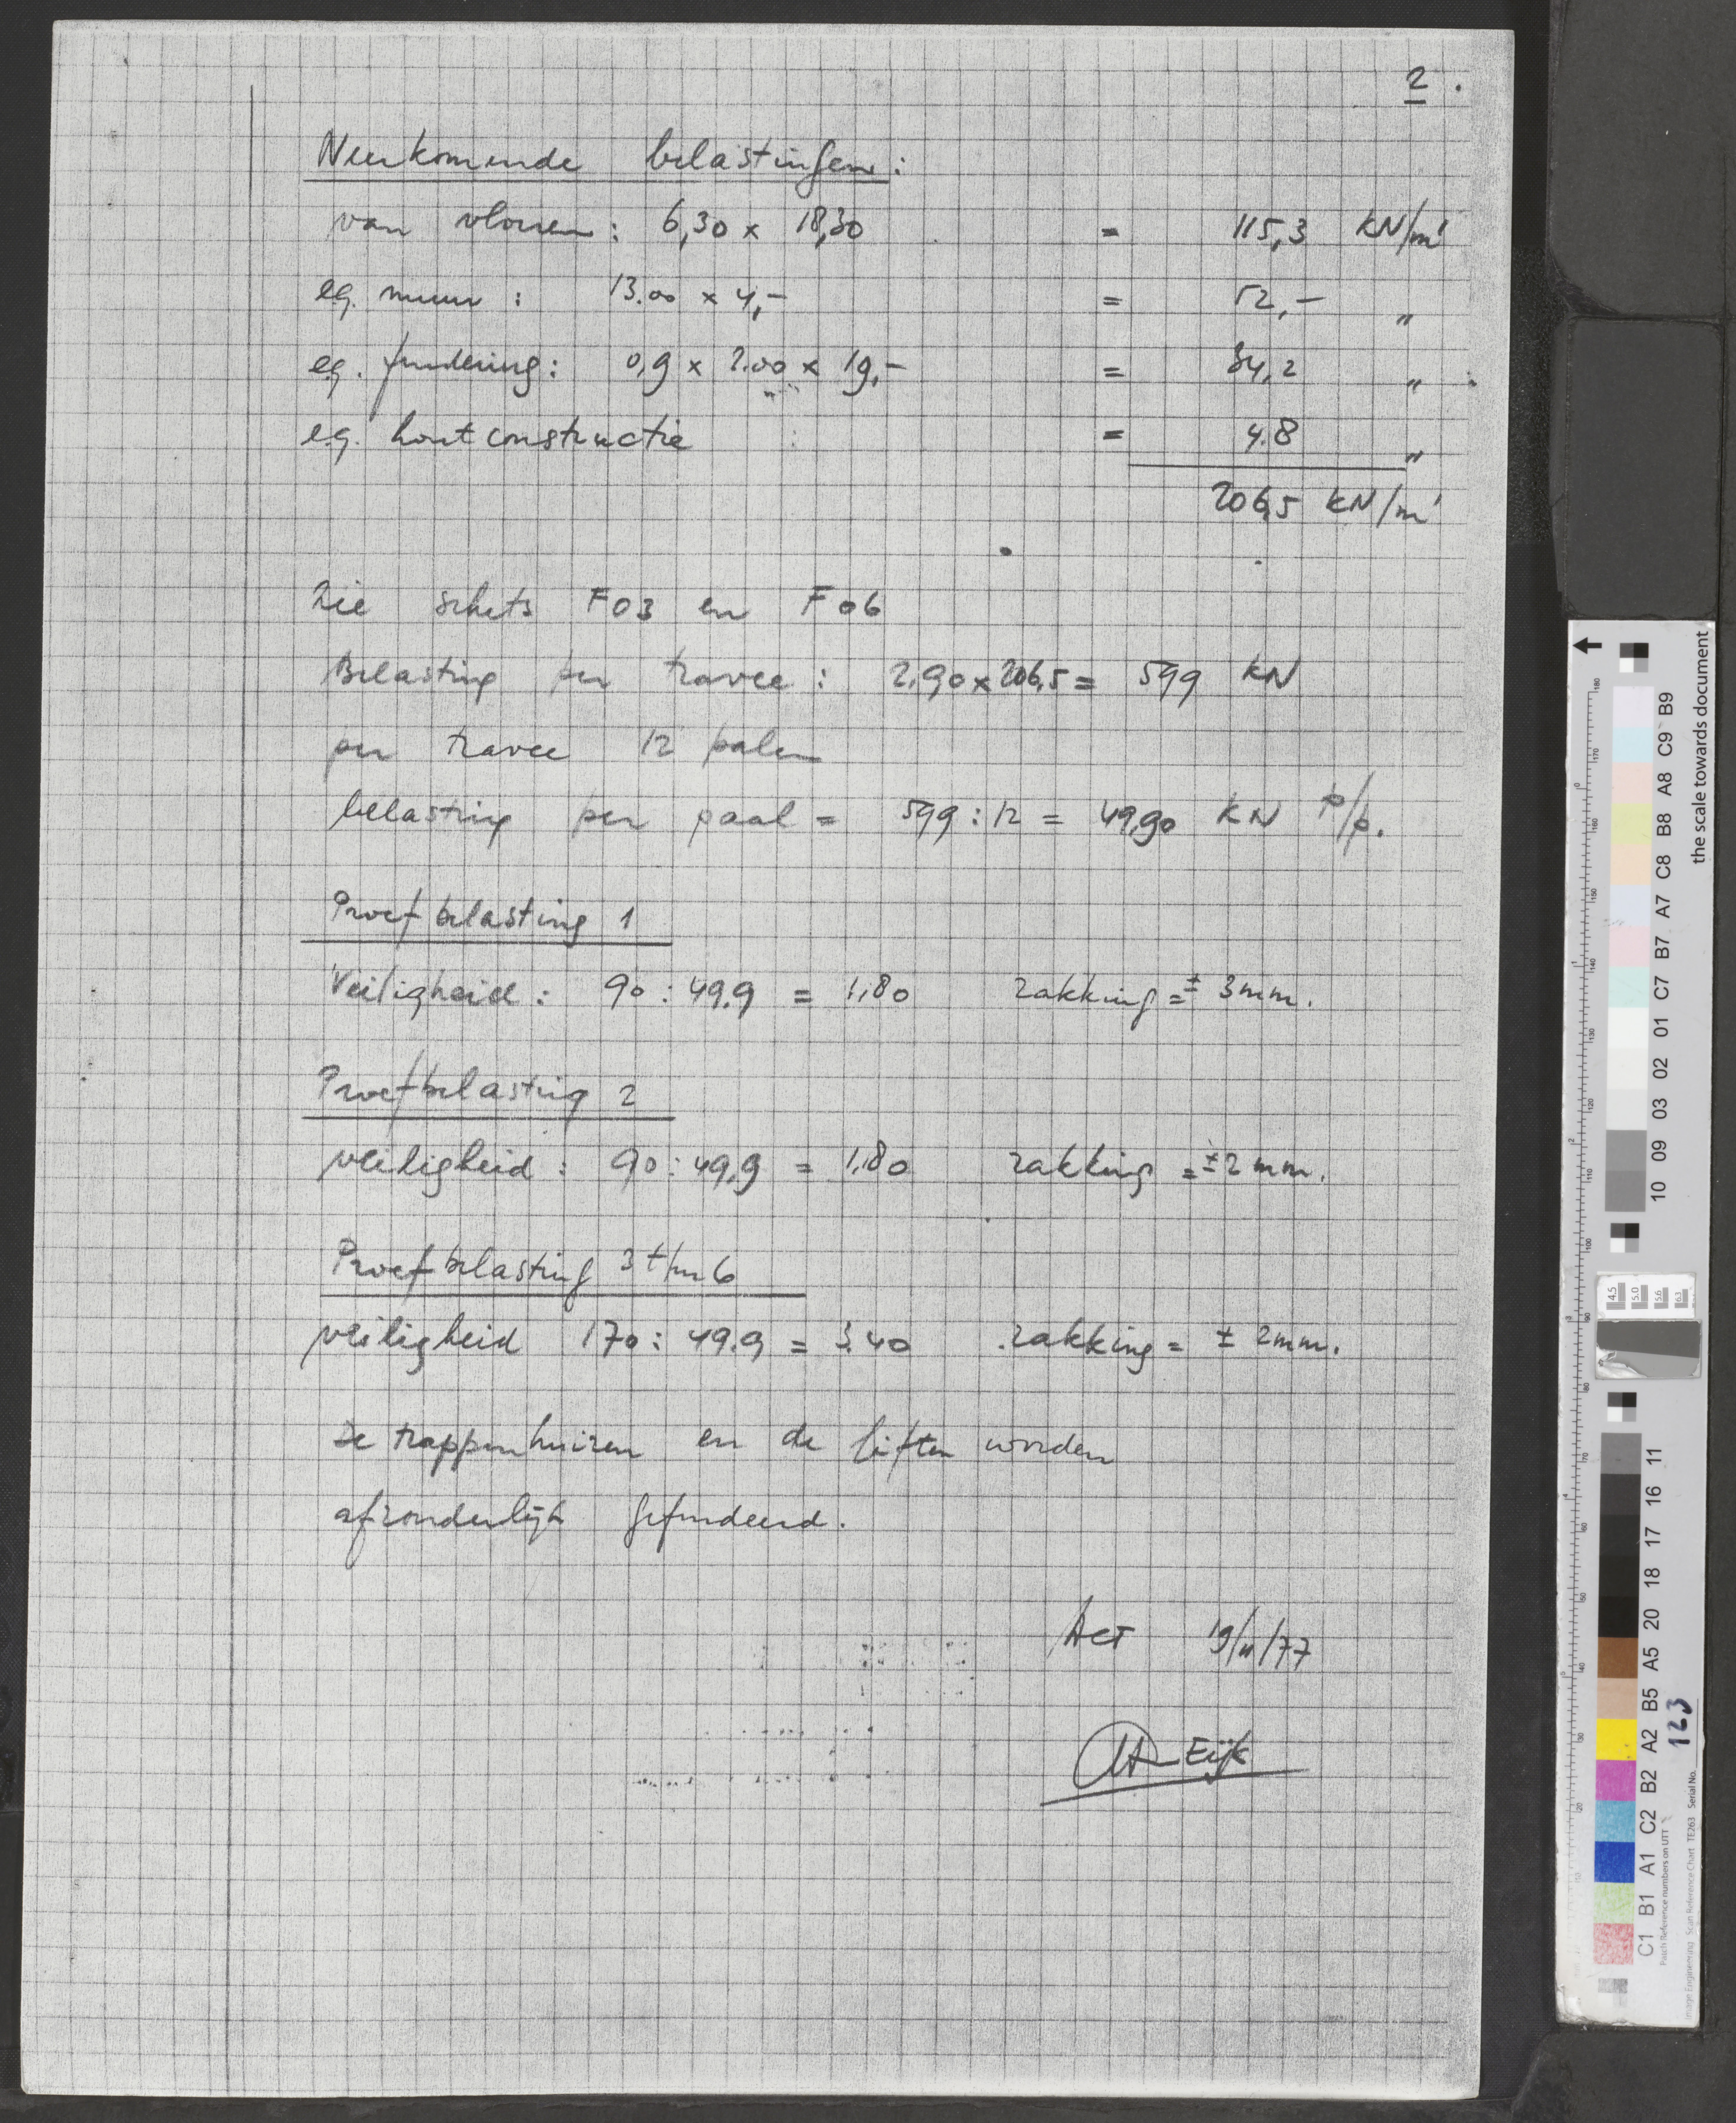 2.
Neerkomende belastingen:
van vloeren: 6,30 x 18,30 = 115,3 KN/m'
eg. muur : 13.00 x 4,- = 52,- "
eg. fundering: 0,9 x 2.00 x 19,- = 34,2 "
eg. houtconstructie = 4.8 "
206,5 KN/m'
Zie schets F03 en F06
Belasting per travee : 2,90 x 206,5 = 599 KN
per travee 12 palen
belasting per paal = 599 : 12 = 49,90 KN p/p.
Proefbelasting 1
Veiligheid : 90 : 49.9 = 1,80 zakking = ± 3mm.
Proefbelasting 2
veiligheid : 90 : 49,9 = 1,80 zakking = ± 2mm.
Proefbelasting 3 t/m 6
veiligheid 170 : 49.9 = 3.40 zakking = ± 2mm.
De trappenhuizen en de liften worden
afzonderlijk gefundeerd.
19/11/77
Eijk
the scale towards document
C1 B1 A1 C2 B2 A2 B5 A5 20 18 17 16 11
10 09 03 02 01 C7 B7 A7 C8 B8 A8 C9 B9
Patch Reference numbers on UTT
Image Engineering Scan Reference Chart TE263 Serial No.
123